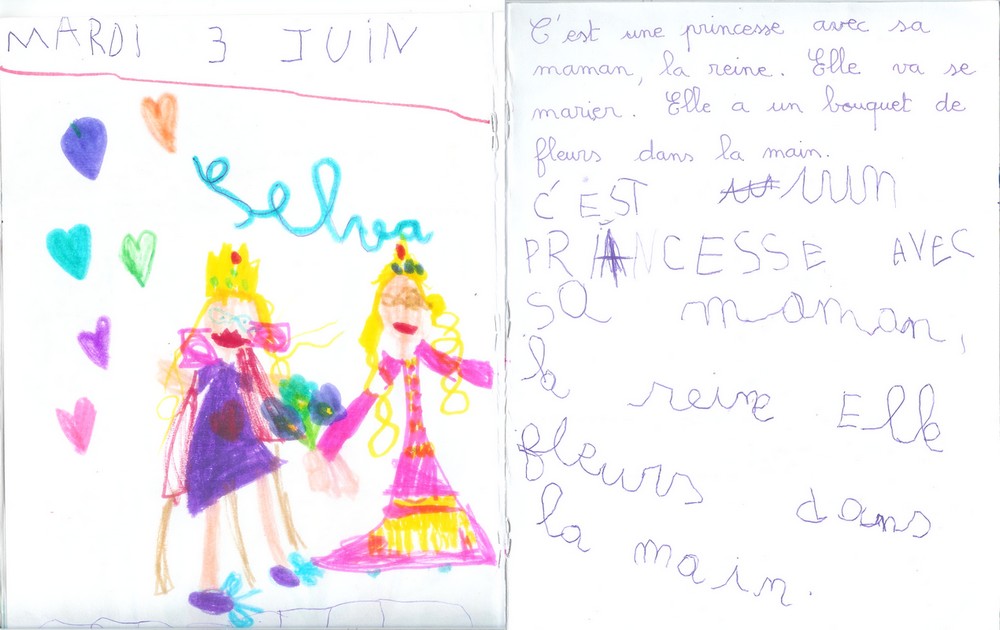 MARDI 3 JUIN
Selva
C'est une princesse avec sa
maman, la reine. Elle va se
marier. Elle a un bouquet de
fleurs dans la main.
C'EST UN
PRINCESSE AVEC
sa maman,
la reine Elle
fleurs dans
la main.